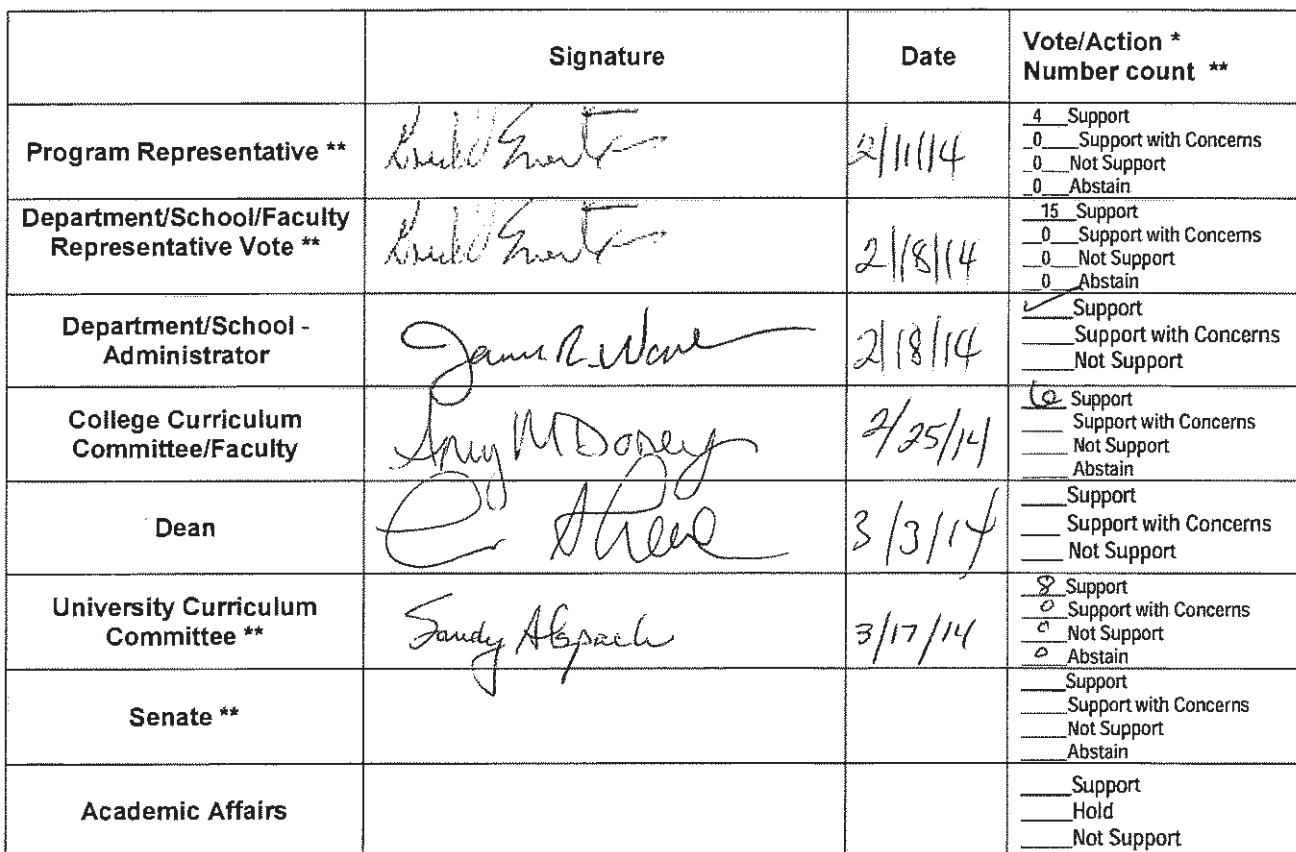 Signature
Date
Vote/Action *
Number count **
Program Representative **
2/11/14
_4_ Support
_0_ Support with Concerns
_0_ Not Support
_0_ Abstain
Department/School/Faculty
Representative Vote **
2/18/14
_15_ Support
_0_ Support with Concerns
_0_ Not Support
_0_ Abstain
Department/School -
Administrator
James R.
2/18/14
✓ Support
____ Support with Concerns
____ Not Support
College Curriculum
Committee/Faculty
Amy M Dorey
2/25/14
6 Support
____ Support with Concerns
____ Not Support
____ Abstain
Dean
3/3/14
____ Support
____ Support with Concerns
____ Not Support
University Curriculum
Committee **
Sandy Alspach
3/17/14
8 Support
0 Support with Concerns
0 Not Support
0 Abstain
Senate **
____ Support
____ Support with Concerns
____ Not Support
____ Abstain
Academic Affairs
____ Support
____ Hold
____ Not Support